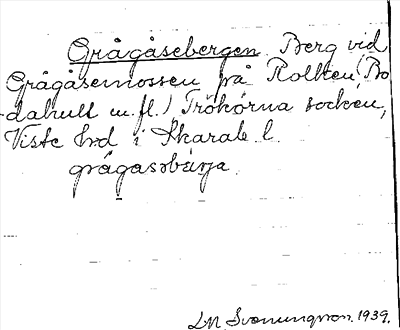 Grågåsebergen. Berg vid
Grågåsemossen på Rolken (Bo
dahult m. fl.) Trökörna socken,
Viste hrd i Skarab. l.
grågasəbärja
LM Svanungsson. 1939.